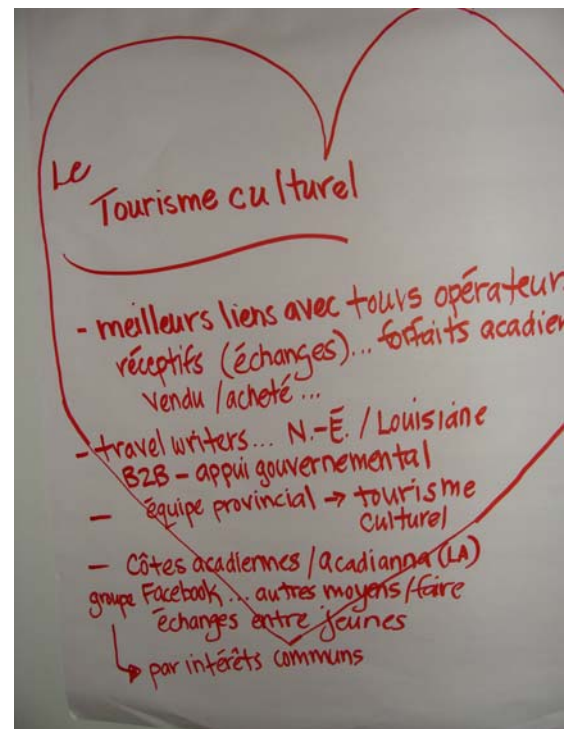 Le
Tourisme culturel
- meilleurs liens avec tours opérateurs
réceptifs (échanges)... forfaits acadien
vendu/acheté...
- travel writers... N.-É. / Louisiane
B2B - appui gouvernemental
- équipe provincial → tourisme
culturel
- Côtes acadiennes/acadianna (LA)
groupe Facebook... autres moyens/faire
échanges entre jeunes
↳ par intérêts communs